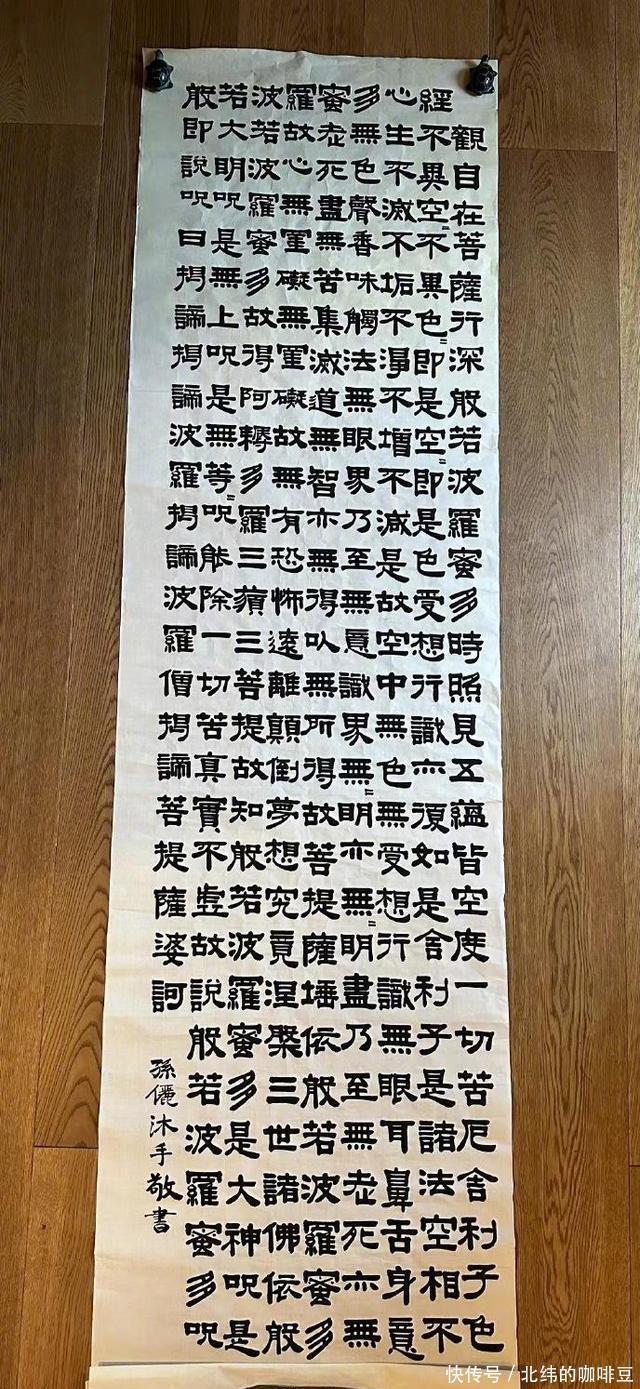 般若波羅蜜多心經
觀自在菩薩行深般若波羅蜜多時照見五蘊皆空度一切苦厄舍利子色
不異空〻不異色〻即是空〻即是色受想行識亦復如是舍利子是諸法空相不
生不滅不垢不淨不增不減是故空中無色無受想行識無眼耳鼻舌身意
無色聲香味觸法無眼界乃至無意識界無〻明亦無〻明盡乃至無老死亦無
老死盡無苦集滅道無智亦無得以無所得故菩提薩埵依般若波羅蜜多
故心無罣礙無罣礙故無有恐怖遠離顛倒夢想究竟涅槃三世諸佛依般
若波羅蜜多故得阿耨多羅三藐三菩提故知般若波羅蜜多是大神呪是
大明呪是無上呪是無等〻呪能除一切苦真實不虛故說般若波羅蜜多呪
即說呪曰揭諦揭諦波羅揭諦波羅僧揭諦菩提薩婆訶
孫儷沐手敬書
快传号/北纬的咖啡豆